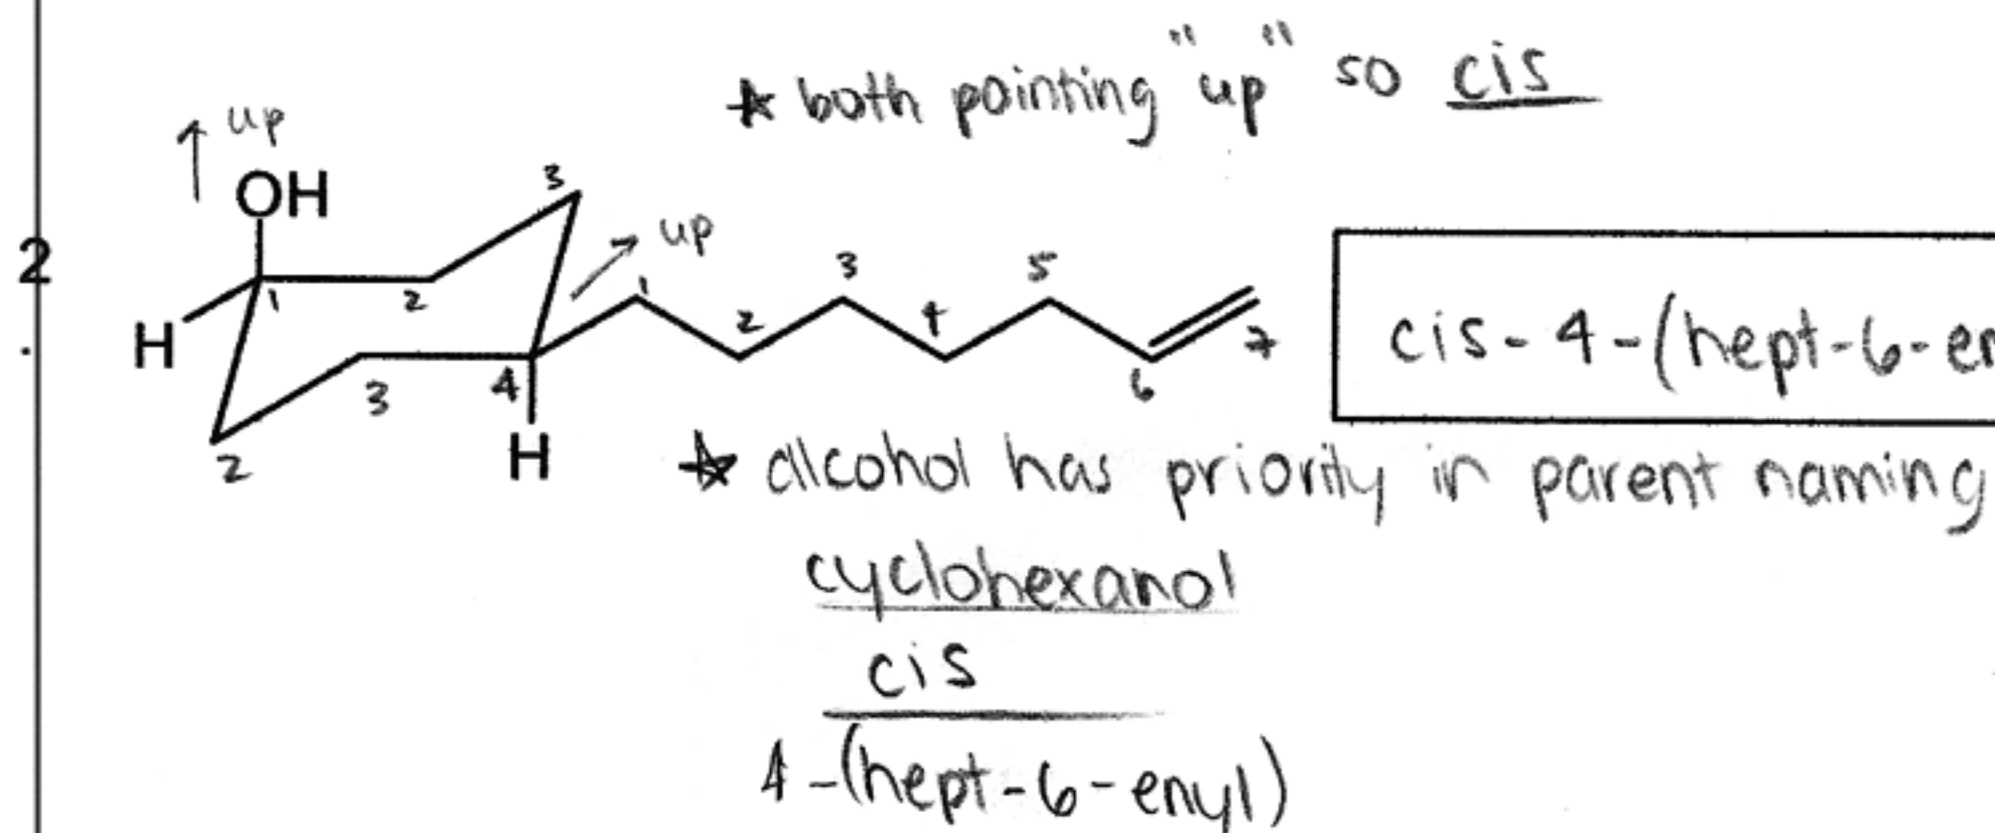 ★ both pointing "up" so cis
↑ up
OH
3
2
1
2
↗ up
1
2
3
4
5
6
7
H
3
4
2
H
.
cis-4-(hept-6-en
★ alcohol has priority in parent naming
cyclohexanol
cis
4-(hept-6-enyl)